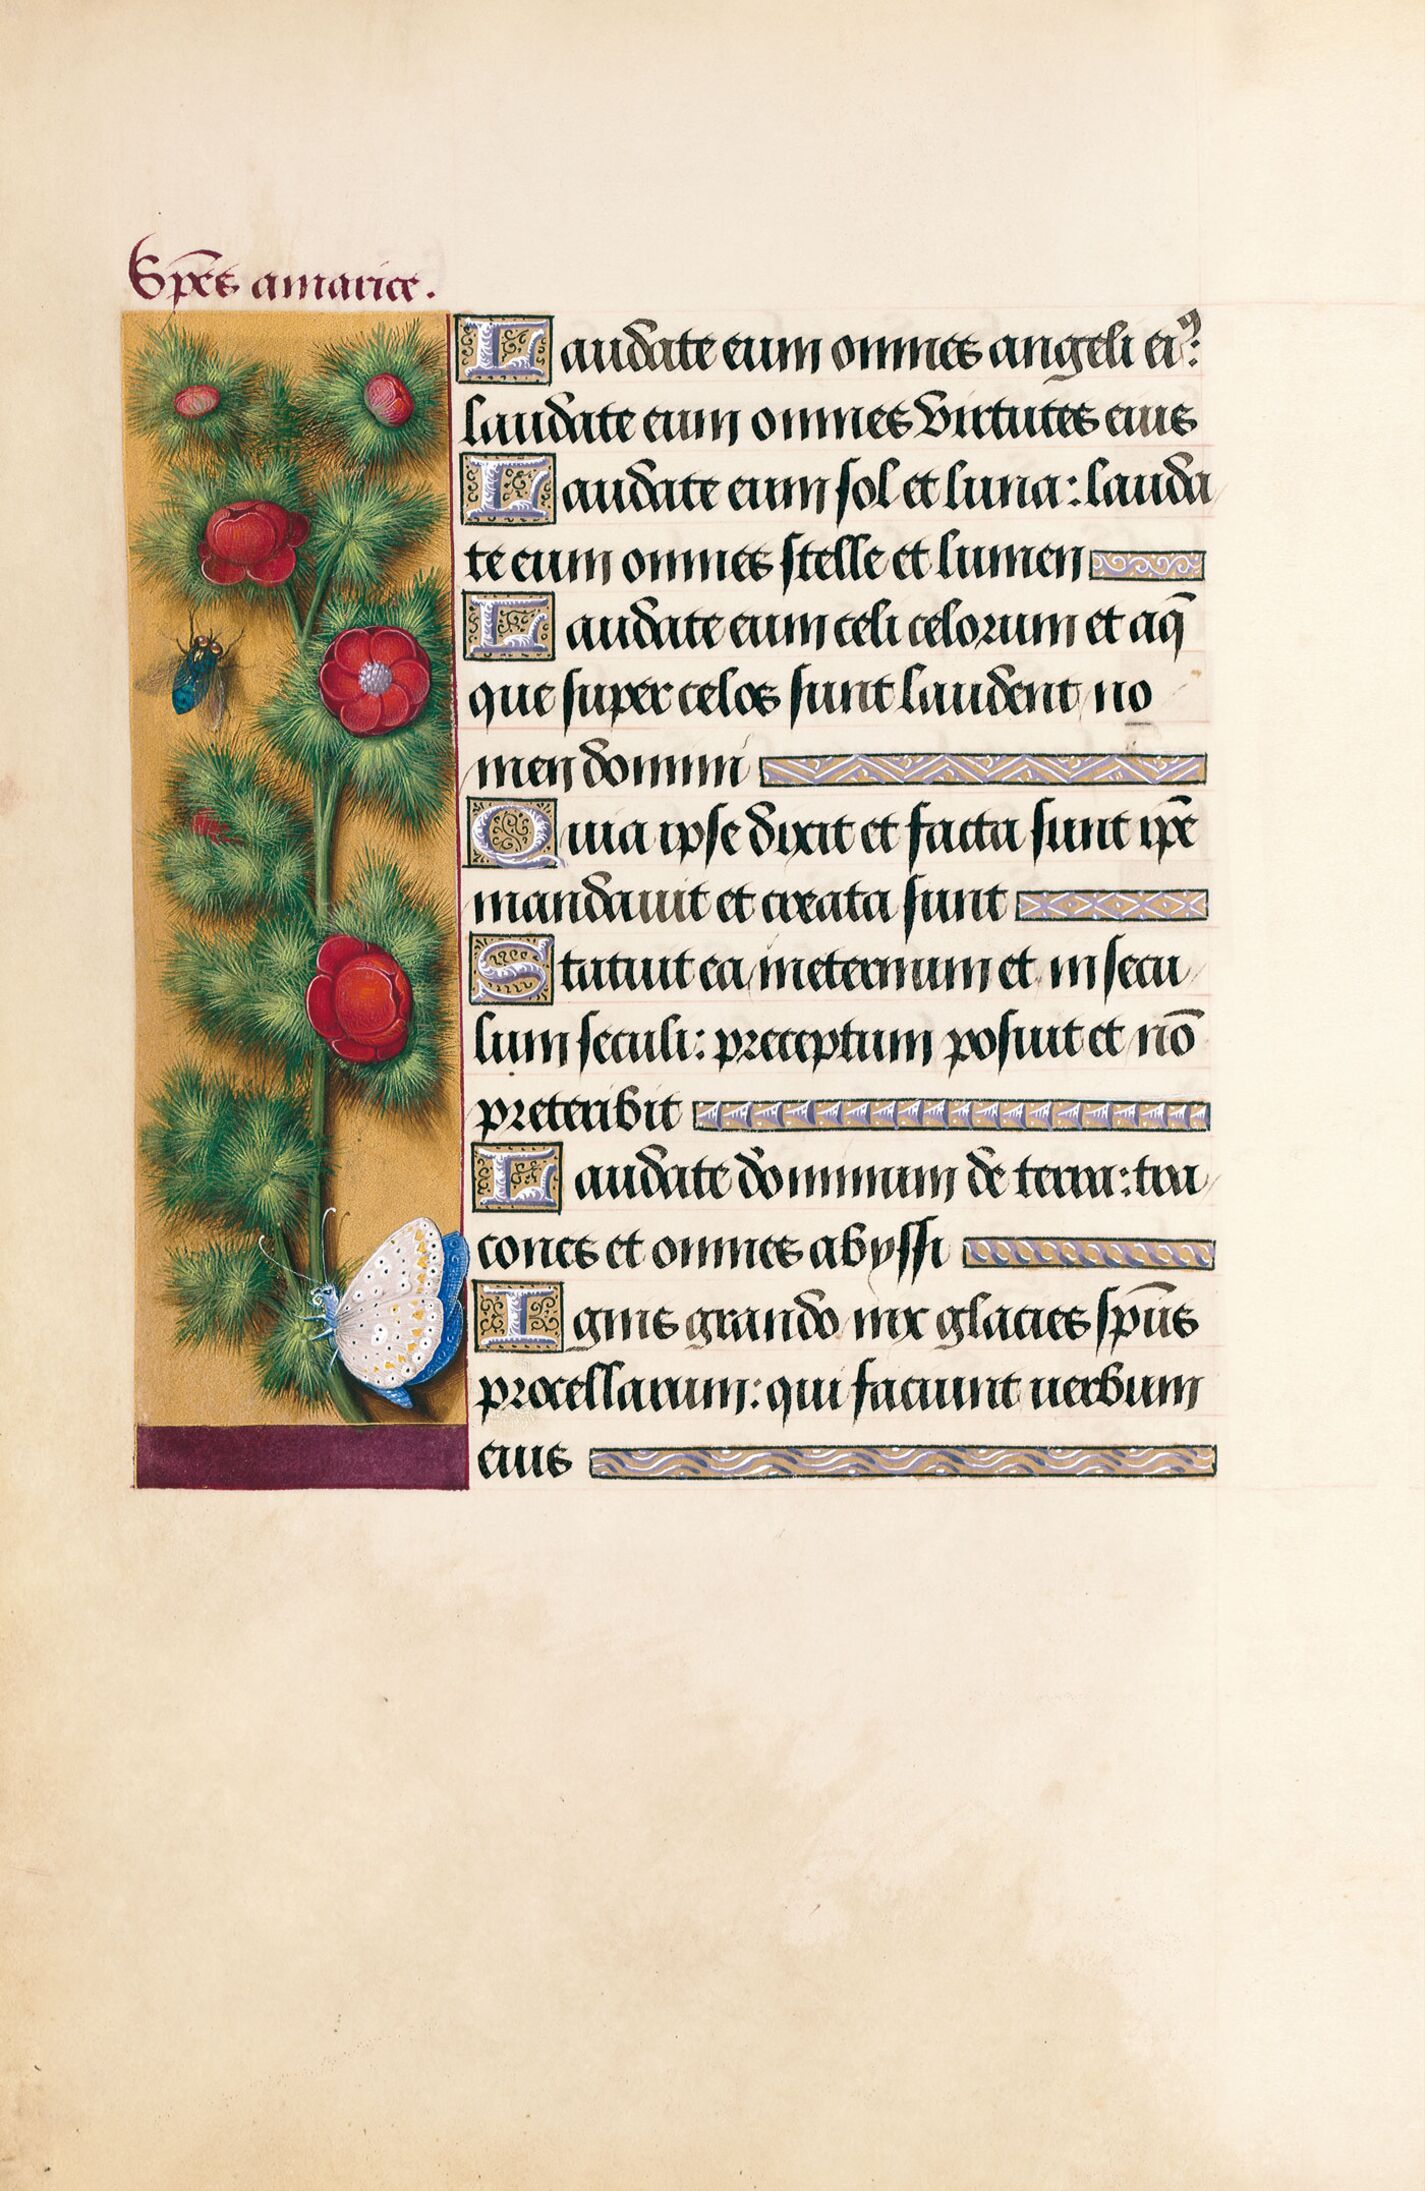 Sp̄es amarice.
Laudate eum omnes angeli eiꝰ:
laudate eum omnes virtutes eius
Laudate eum sol et luna: lauda
te eum omnes stelle et lumen
Laudate eum celi celorum et aq̄
que super celos sunt laudent no
men domini
Quia ipse dixit et facta sunt ip̄e
mandauit et creata sunt
Statuit ea in eternum et in secu
lum seculi: preceptum posuit et nō
preteribit
Laudate dominum de terra: dra
cones et omnes abyssi
Ignis grando nix glacies sp̄us
procellarum: qui faciunt uerbum
eius